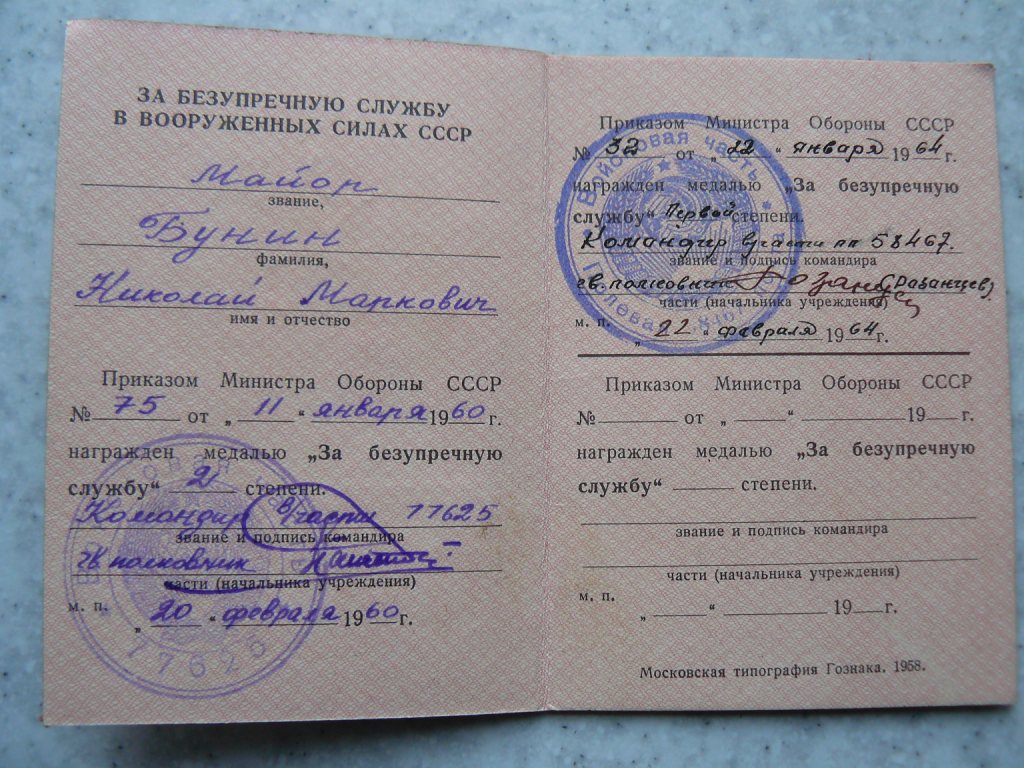 ЗА БЕЗУПРЕЧНУЮ СЛУЖБУ
В ВООРУЖЕННЫХ СИЛАХ СССР
Майор
звание,
Бунин
фамилия,
Николай Маркович
имя и отчество
Приказом Министра Обороны СССР
№ 75 от „ 11 “ января 1960 г.
награжден медалью „За безупречную
службу“ 2 степени.
Командир в/части 77625
звание и подпись командира
гв. полковник
части (начальника учреждения)
м. п.
„ 20 “ февраля 1960 г.
77625
Приказом Министра Обороны СССР
№ 32 от „ 22 “ января 1964 г.
награжден медалью „За безупречную
службу“ Первой степени.
Командир в/части пп 58467.
звание и подпись командира
гв. полковник (Рабанцев)
части (начальника учреждения)
м. п.
„ 22 “ февраля 1964 г.
Войсковая часть
Полевая
Приказом Министра Обороны СССР
№ от „ “ 19 г.
награжден медалью „За безупречную
службу“ степени.
звание и подпись командира
части (начальника учреждения)
м. п.
„ “ 19 г.
Московская типография Гознака. 1958.